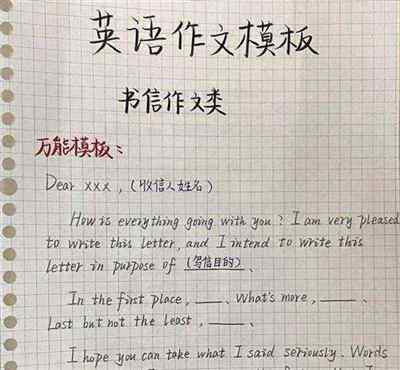 英语作文模板
书信作文类
万能模板：
Dear xxx , (收信人姓名)
How is everything going with you ? I am very pleased
to write this letter, and I intend to write this
letter in purpose of (写信目的) 、
In the first place, ____、 What's more, ____、
Last but not the least , ____、
I hope you can take what I said seriously. Words